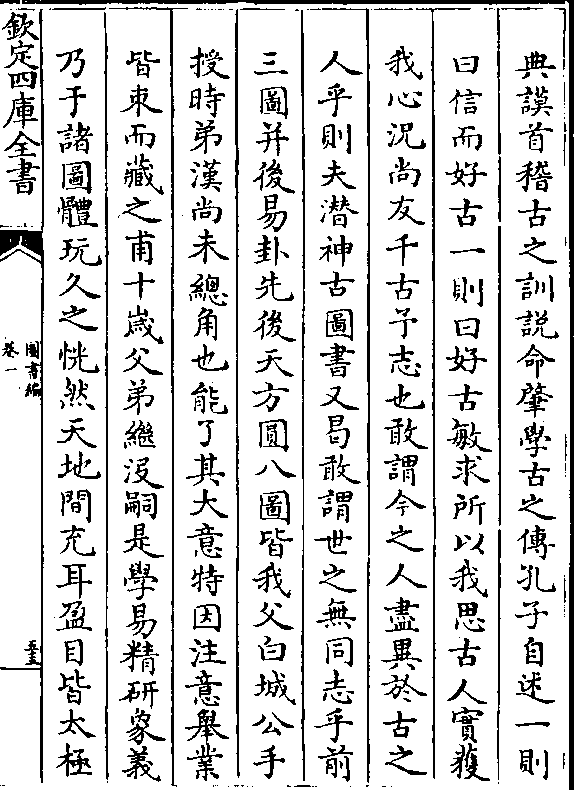 典謨首稽古之訓説命肇學古之傳孔子自述一則
曰信而好古一則曰好古敏求所以我思古人實獲
我心況尚友千古予志也敢謂今之人盡異於古之
人乎則夫潜神古圖書又曷敢謂世之無同志乎前
三圖并後易卦先後天方圓八圖皆我父白城公手
授時弟漢尚未總角也能了其大意特因注意舉業
皆束而藏之甫十歲父弟繼沒嗣是學易精研象義
乃于諸圖體玩久之恍然天地間充耳盈目皆太極
欽定四庫全書
圖書編
卷一